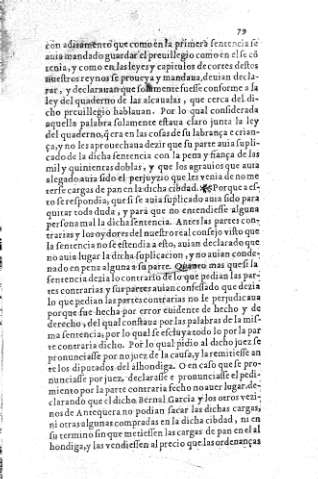 79
con aditamento que como en la primera sentencia se
auia mandado guardar el preuillegio como en el se cõ
tenia, y como en las leyes y capitulos de cortes destos
nuestros reynos se proueya y mandaua, deuian decla-
rar, y declarauan que solamente fuesse conforme a la
ley del quaderno de las alcaualas, que cerca del di-
cho preuillegio hablauan. Por lo qual considerada
aquella palabra solamente estaua claro junta la ley
del quaderno, q̃ era en las cosas de su labrança e crian-
ça, y no les aprouechaua dezir que su parte auia supli-
cado de la dicha sentencia con la pena y fiança de las
mil y quinientas doblas, y que los agrauios que auia
alegado auia sido el perjuyzio que les venia de no me
terse cargas de pan en la dicha cibdad. Porque a es-
to se respondia, que si se auia suplicado auia sido para
quitar toda duda, y para que no entendiesse alguna
persona mal la dicha sentencia. Antes las partes con-
trarias y los oydores del nuestro real consejo visto que
la sentencia no se estendia a esto, auian declarado que
no auia lugar la dicha suplicacion, y no auian conde-
nado en pena alguna a su parte. Quanto mas que si la
sentencia dezia lo contrario de lo que pedian las par-
tes contrarias y sus partes auian confessado que dezia
lo que pedian las partes contrarias no le perjudicaua
porque fue hecha por error euidente de hecho y de
derecho, del qual constaua por las palabras de la mis-
ma sentencia, por lo qual se escluya todo lo por la par
te contraria dicho. Por lo qual pidio al dicho juez se
pronunciasse por no juez de la causa, y la remitiesse an
te los diputados del alhondiga. O en caso que se pro-
nunciasse por juez, declarasse e pronunciasse el pedi-
miento por la parte contraria fecho no auer lugar, de-
clarando que el dicho Bernal Garcia y los otros vezi-
nos de Antequera no podian sacar las dichas cargas,
ni otras algunas compradas en la dicha cibdad, ni en
su termino sin que metiessen las cargas de pan en el al
hondiga, y las vendiessen al precio que las ordenanças